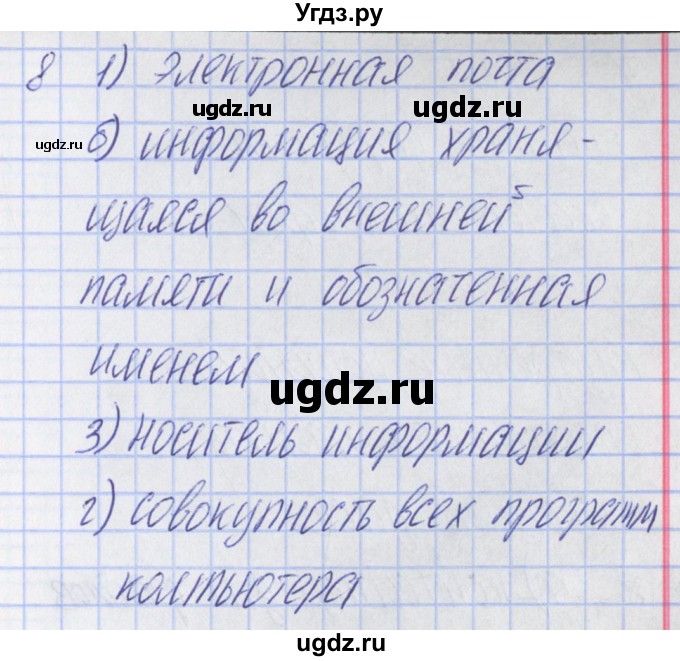 Угдз.ру
8 1) электронная почта
ugdz.ru ugdz.ru
ugdz.ru б) информация храня-
щаяся во внешней
памяти и обозначенная
именем
ugdz.ru
3) носитель информации
г) совокупность всех программ
компьютера
ugdz.ru